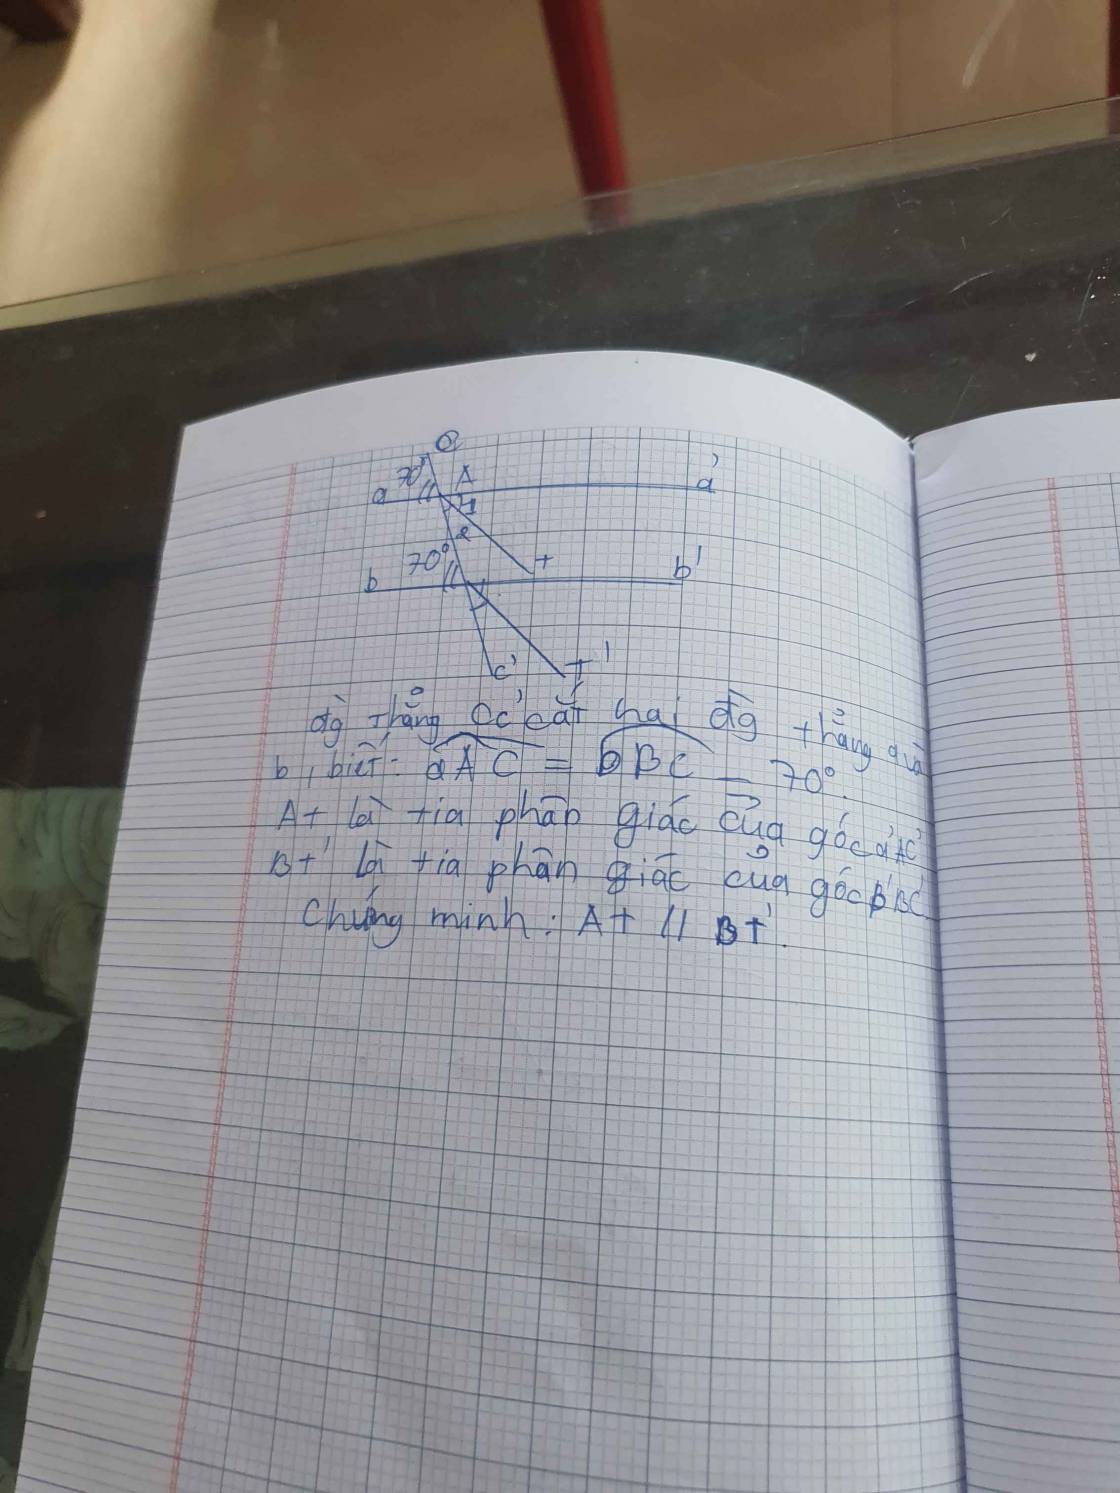 70°
A
a
a'
1
2
70°
t
b
b'
c'
t'
đg thẳng cc' cắt hai đg thẳng a và
b, biết: aAC = bBC = 70°.
At là tia phân giác của góc a'AC'
Bt' là tia phân giác của góc b'BC'.
Chứng minh: At // Bt'.